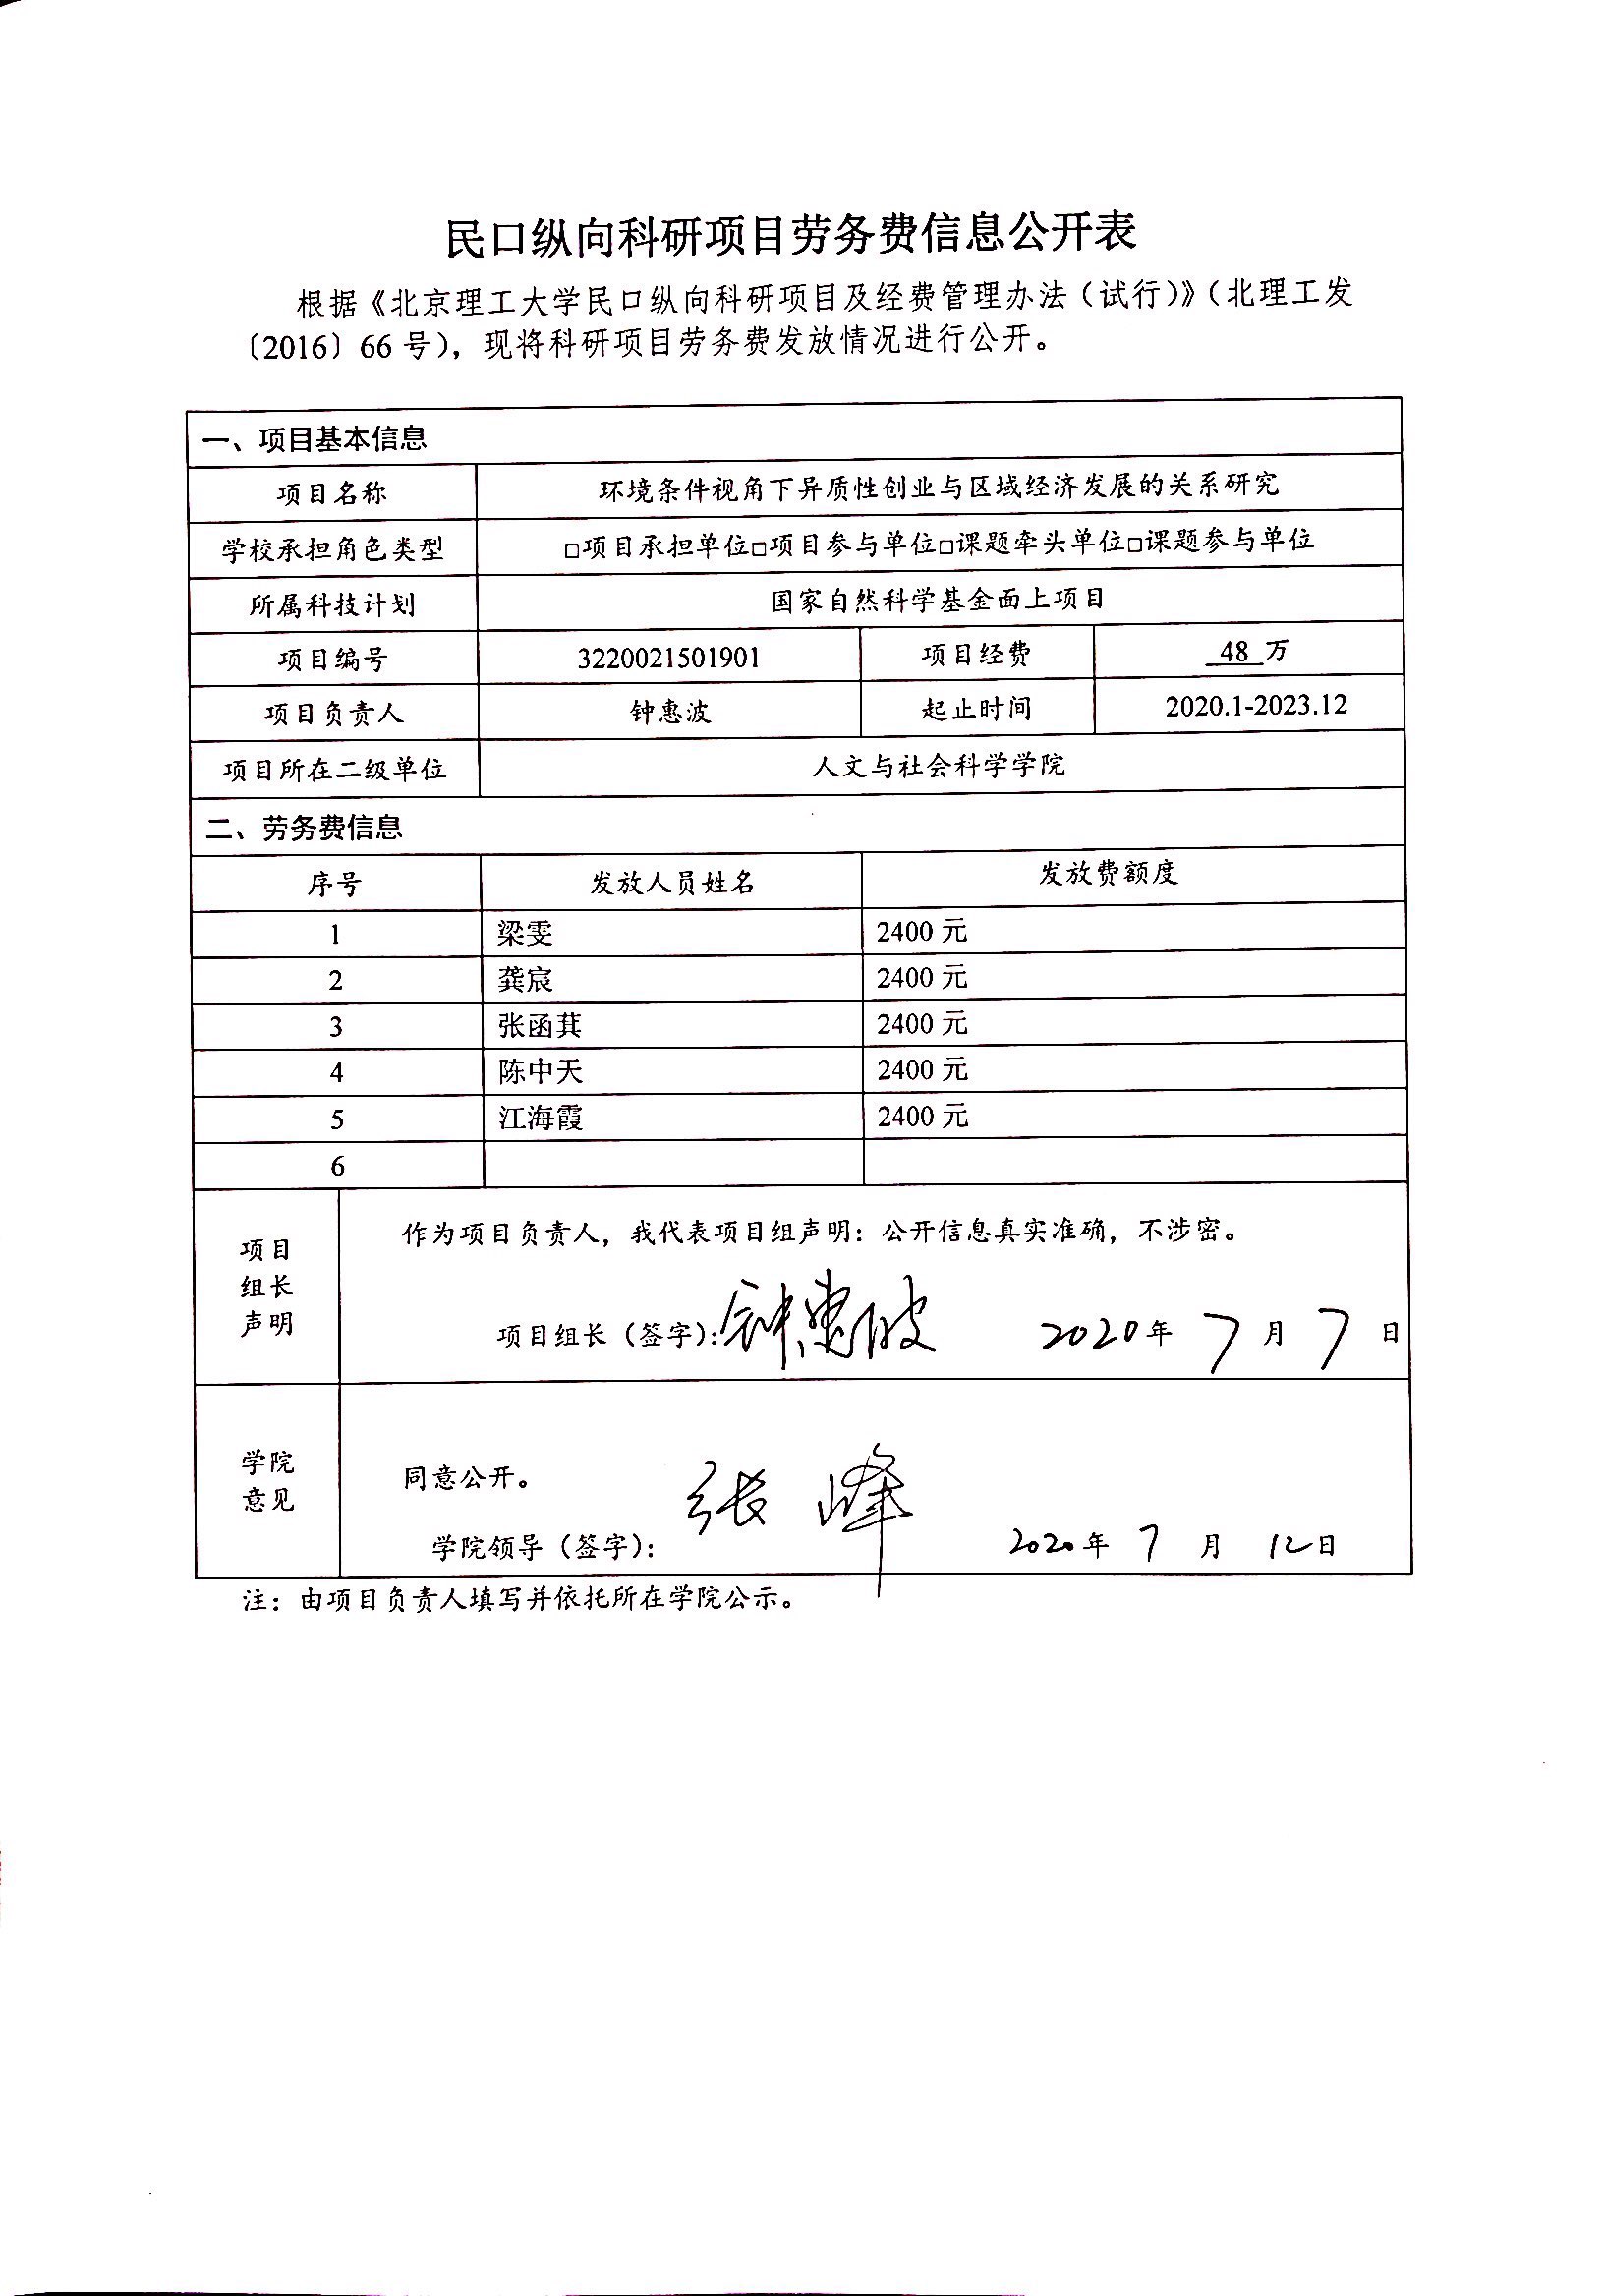 民口纵向科研项目劳务费信息公开表
根据《北京理工大学民口纵向科研项目及经费管理办法（试行）》（北理工发
〔2016〕66 号），现将科研项目劳务费发放情况进行公开。
一、项目基本信息
项目名称 环境条件视角下异质性创业与区域经济发展的关系研究
学校承担角色类型 □项目承担单位□项目参与单位□课题牵头单位□课题参与单位
所属科技计划 国家自然科学基金面上项目
项目编号 3220021501901 项目经费 48 万
项目负责人 钟惠波 起止时间 2020.1-2023.12
项目所在二级单位 人文与社会科学学院
二、劳务费信息
序号 发放人员姓名 发放费额度
1 梁雯 2400 元
2 龚宸 2400 元
3 张函萁 2400 元
4 陈中天 2400 元
5 江海霞 2400 元
6
项目
组长
声明
作为项目负责人，我代表项目组声明：公开信息真实准确，不涉密。
项目组长（签字）：钟惠波 2020年 7 月 7 日
学院
意见
同意公开。
学院领导（签字）： 张峰 2020年 7 月 12日
注：由项目负责人填写并依托所在学院公示。